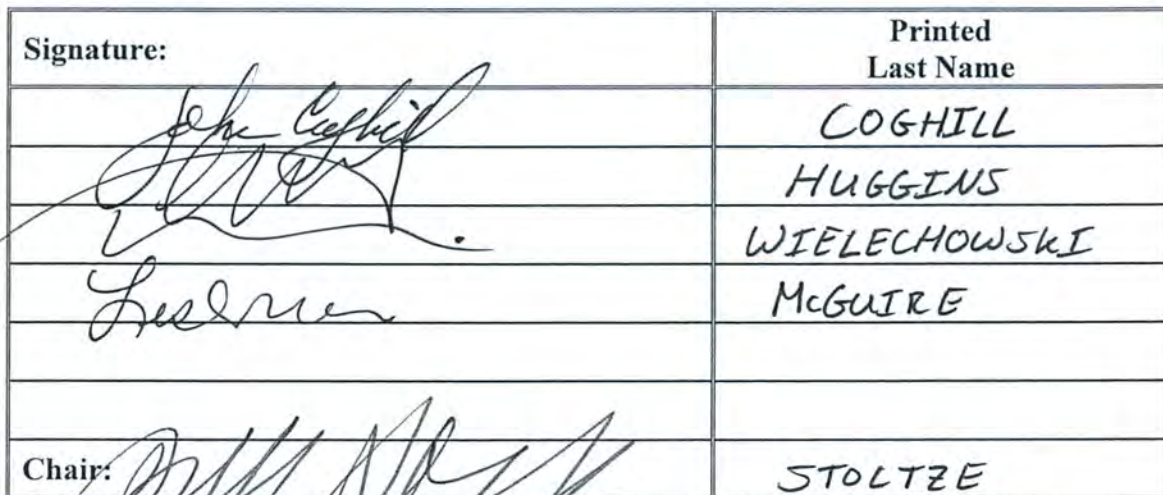 Signature: Printed
Last Name
John Coghill COGHILL
HUGGINS
WIELECHOWSKI
McGUIRE
Chair: STOLTZE